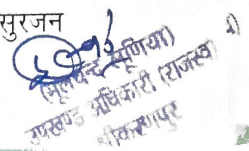 सुरजन
(मूलचन्द लूणिया)
उपखण्ड अधिकारी (राजस्व)
श्रीकरणपुर